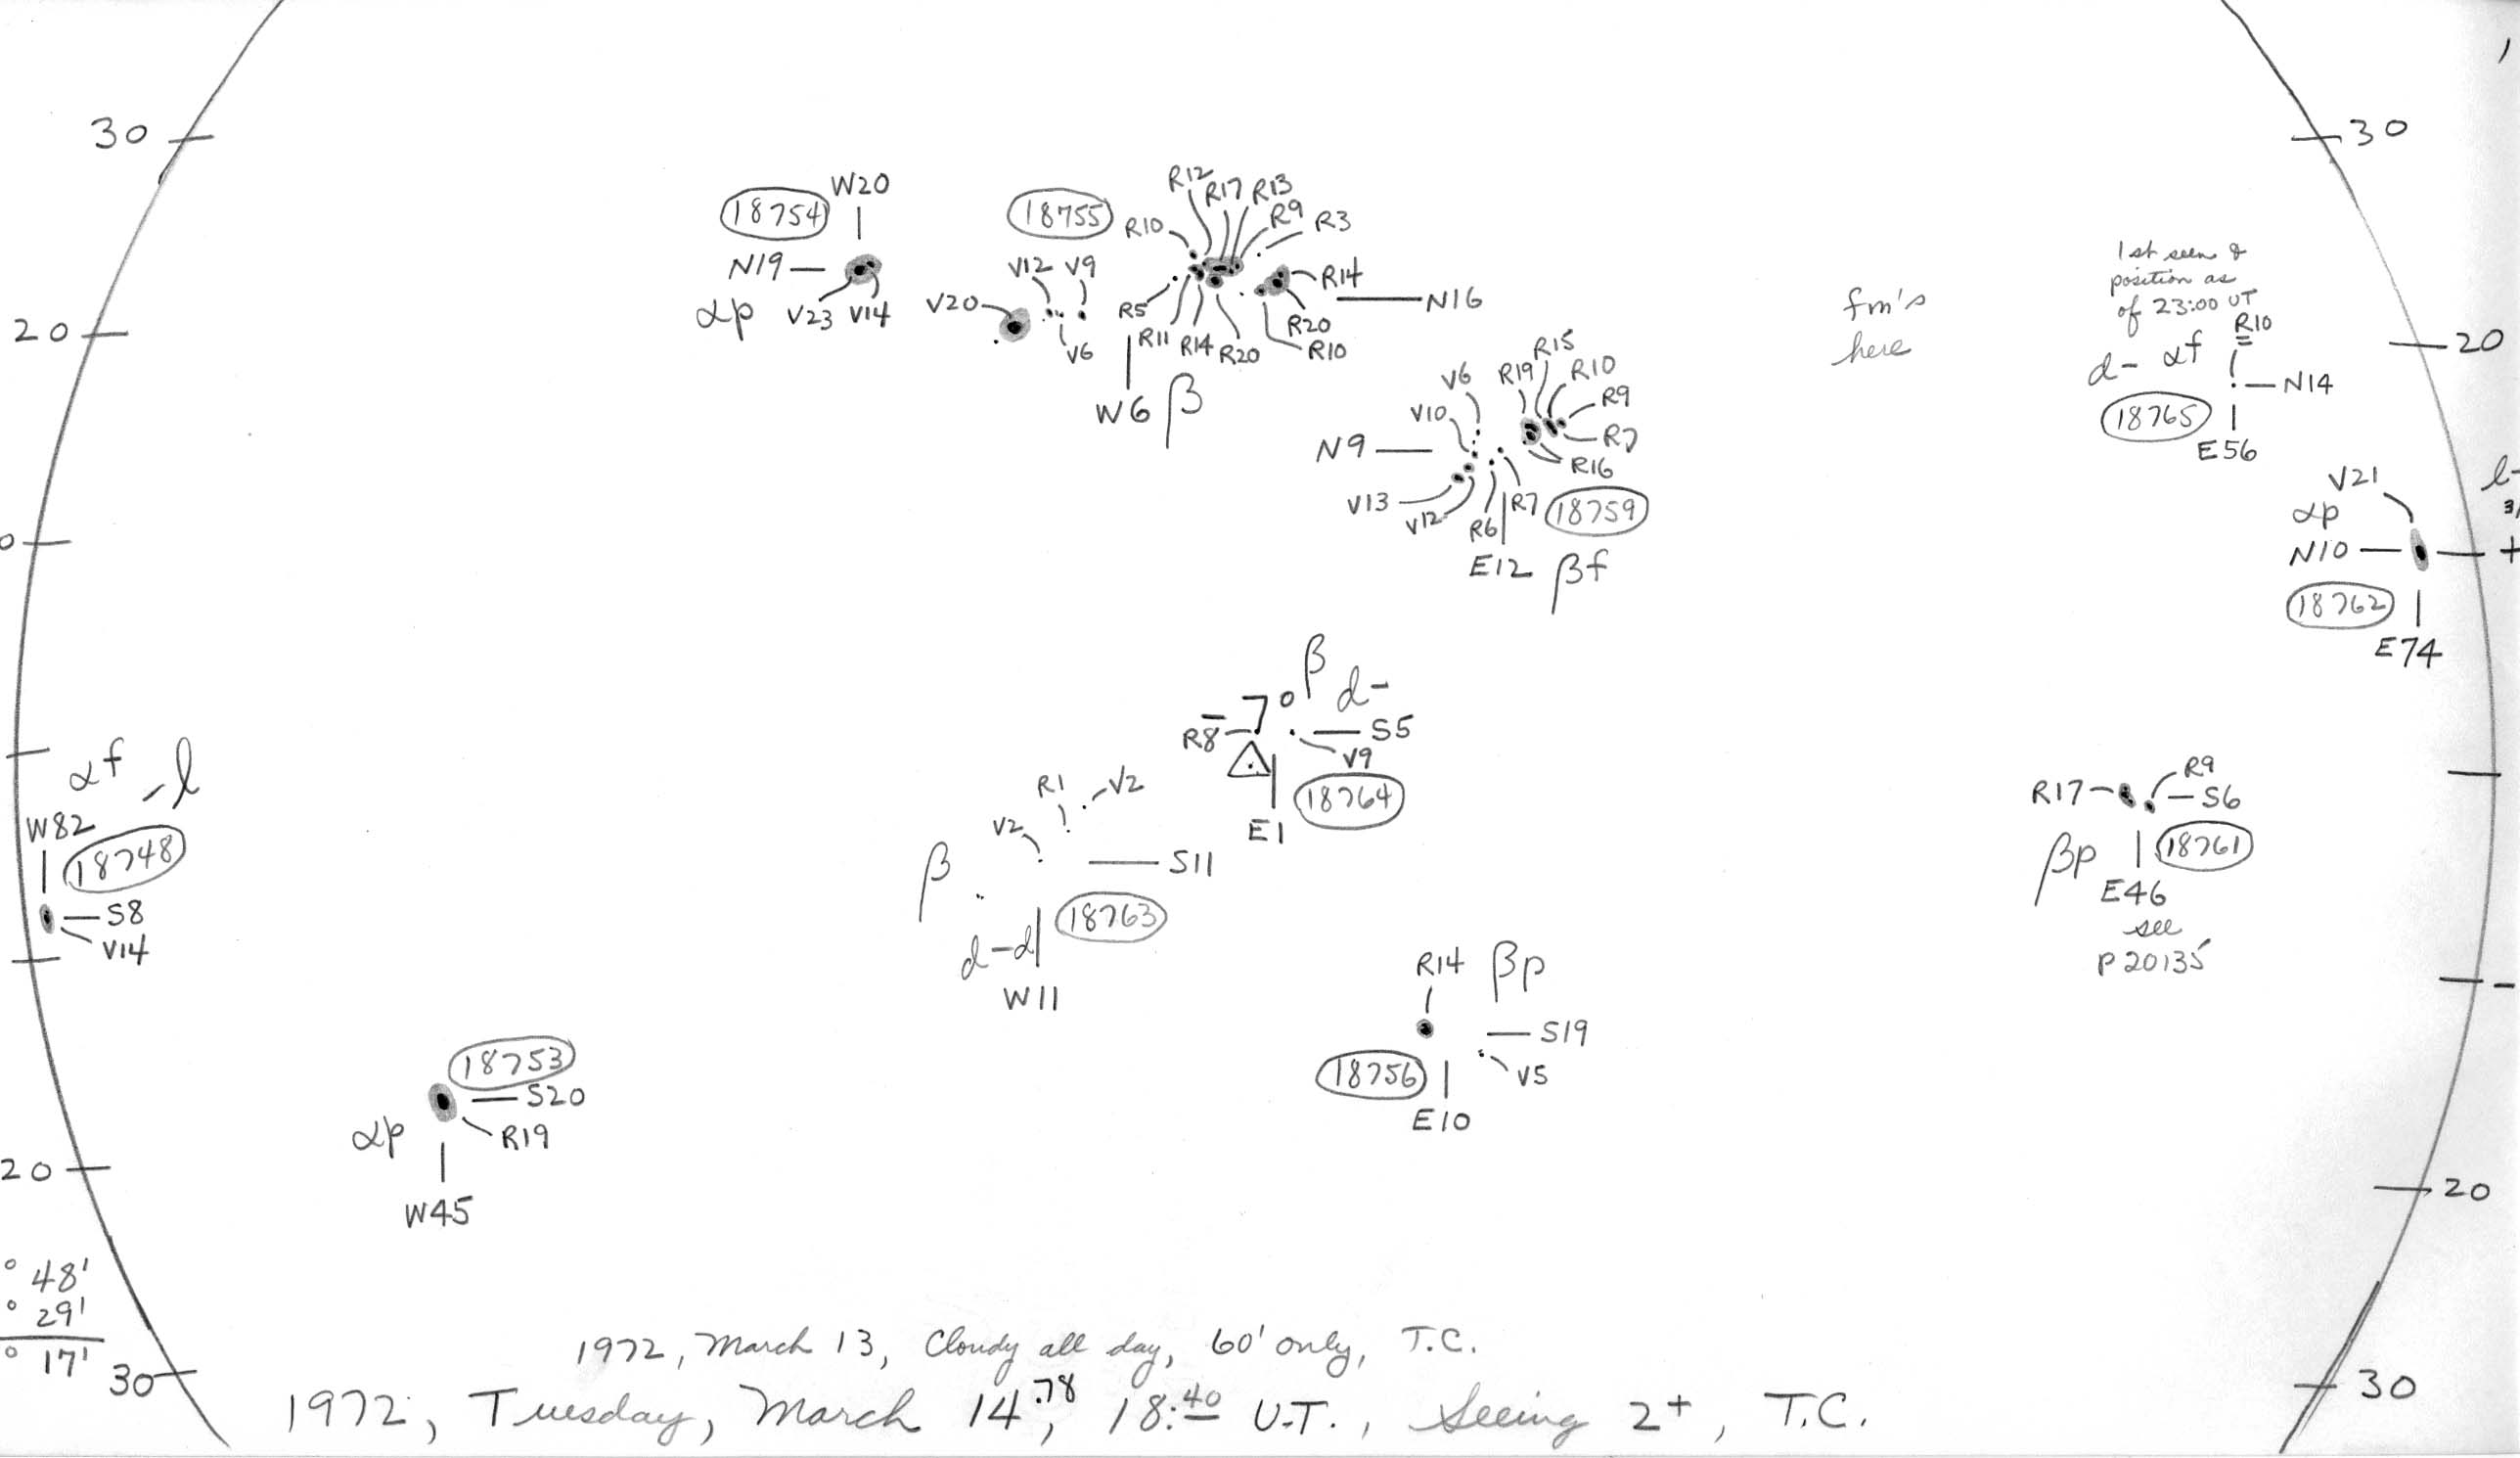 30
30
W20
18754
N19
αp
V23 V14
18755
R12
R17 R13
R10
R9
R3
V12 V9
V20
V6
R5
R11 R14 R20
R14
R20
R10
N16
W6 β
fm's
here
1st seen &
position as
of 23:00 UT
R10
d- αf
N14
18765
E56
20
20
V6
R19
R15
R10
R9
V10
R7
N9
R16
V13
V12
R6
R7
18759
E12 βf
V21
αp
N10
18762
E74
0
+
β
7° d-
R8
S5
V9
18764
E1
αf -l
W82
18748
S8
V14
R1 V2
V2
β
S11
18763
d-d
W11
R17
R9
S6
βp
18761
E46
see
P 20135
R14 βp
S19
18756
V5
E10
18753
S20
αp
R19
W45
20
20
° 48'
° 29'
° 17'
30
30
1972, March 13, Cloudy all day, 60' only, T.C.
1972, Tuesday, March 14.78, 18:40 U.T., Seeing 2+, T.C.